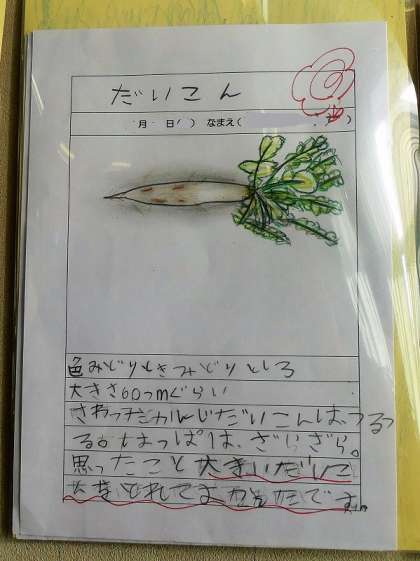 だいこん
月 日( ) なまえ(
色みどりときみどりとしろ
大きさ60cmぐらい
さわったかんじだいこんは、つるつ
る。はっぱは、ざらざら。
思ったこと大きいだいこ
んを
です。